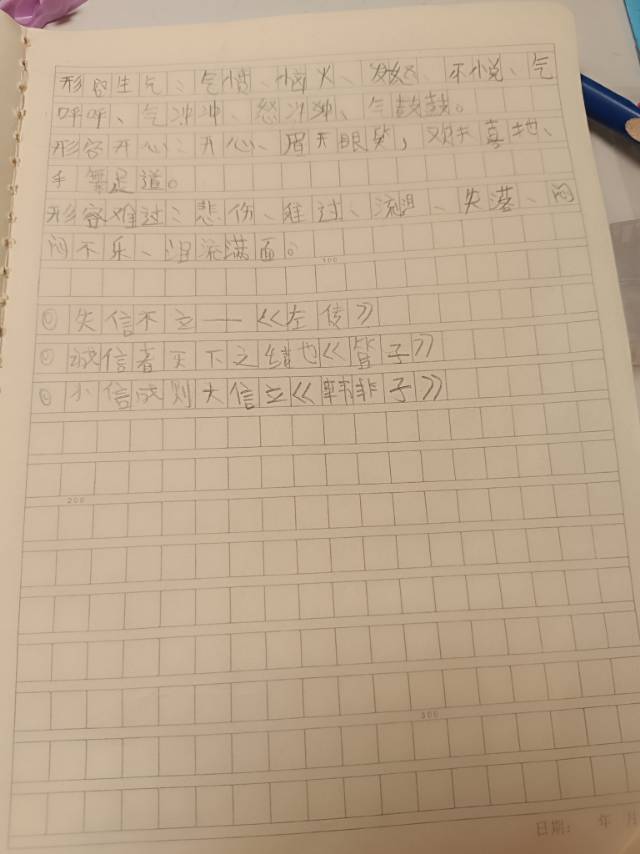 形容生气：气愤、恼火、发怒、不悦、气
呼呼、气冲冲、怒冲冲、气鼓鼓。
形容开心：开心、眉开眼笑，欢天喜地、
手舞足道。
形容难过：悲伤、难过、流泪、失落、闷
闷不乐、泪流满面。
100
① 失信不立——《左传》
② 诚信者天下之结也《管子》
③ 小信成则大信立《韩非子》
200
300
日期： 年 月